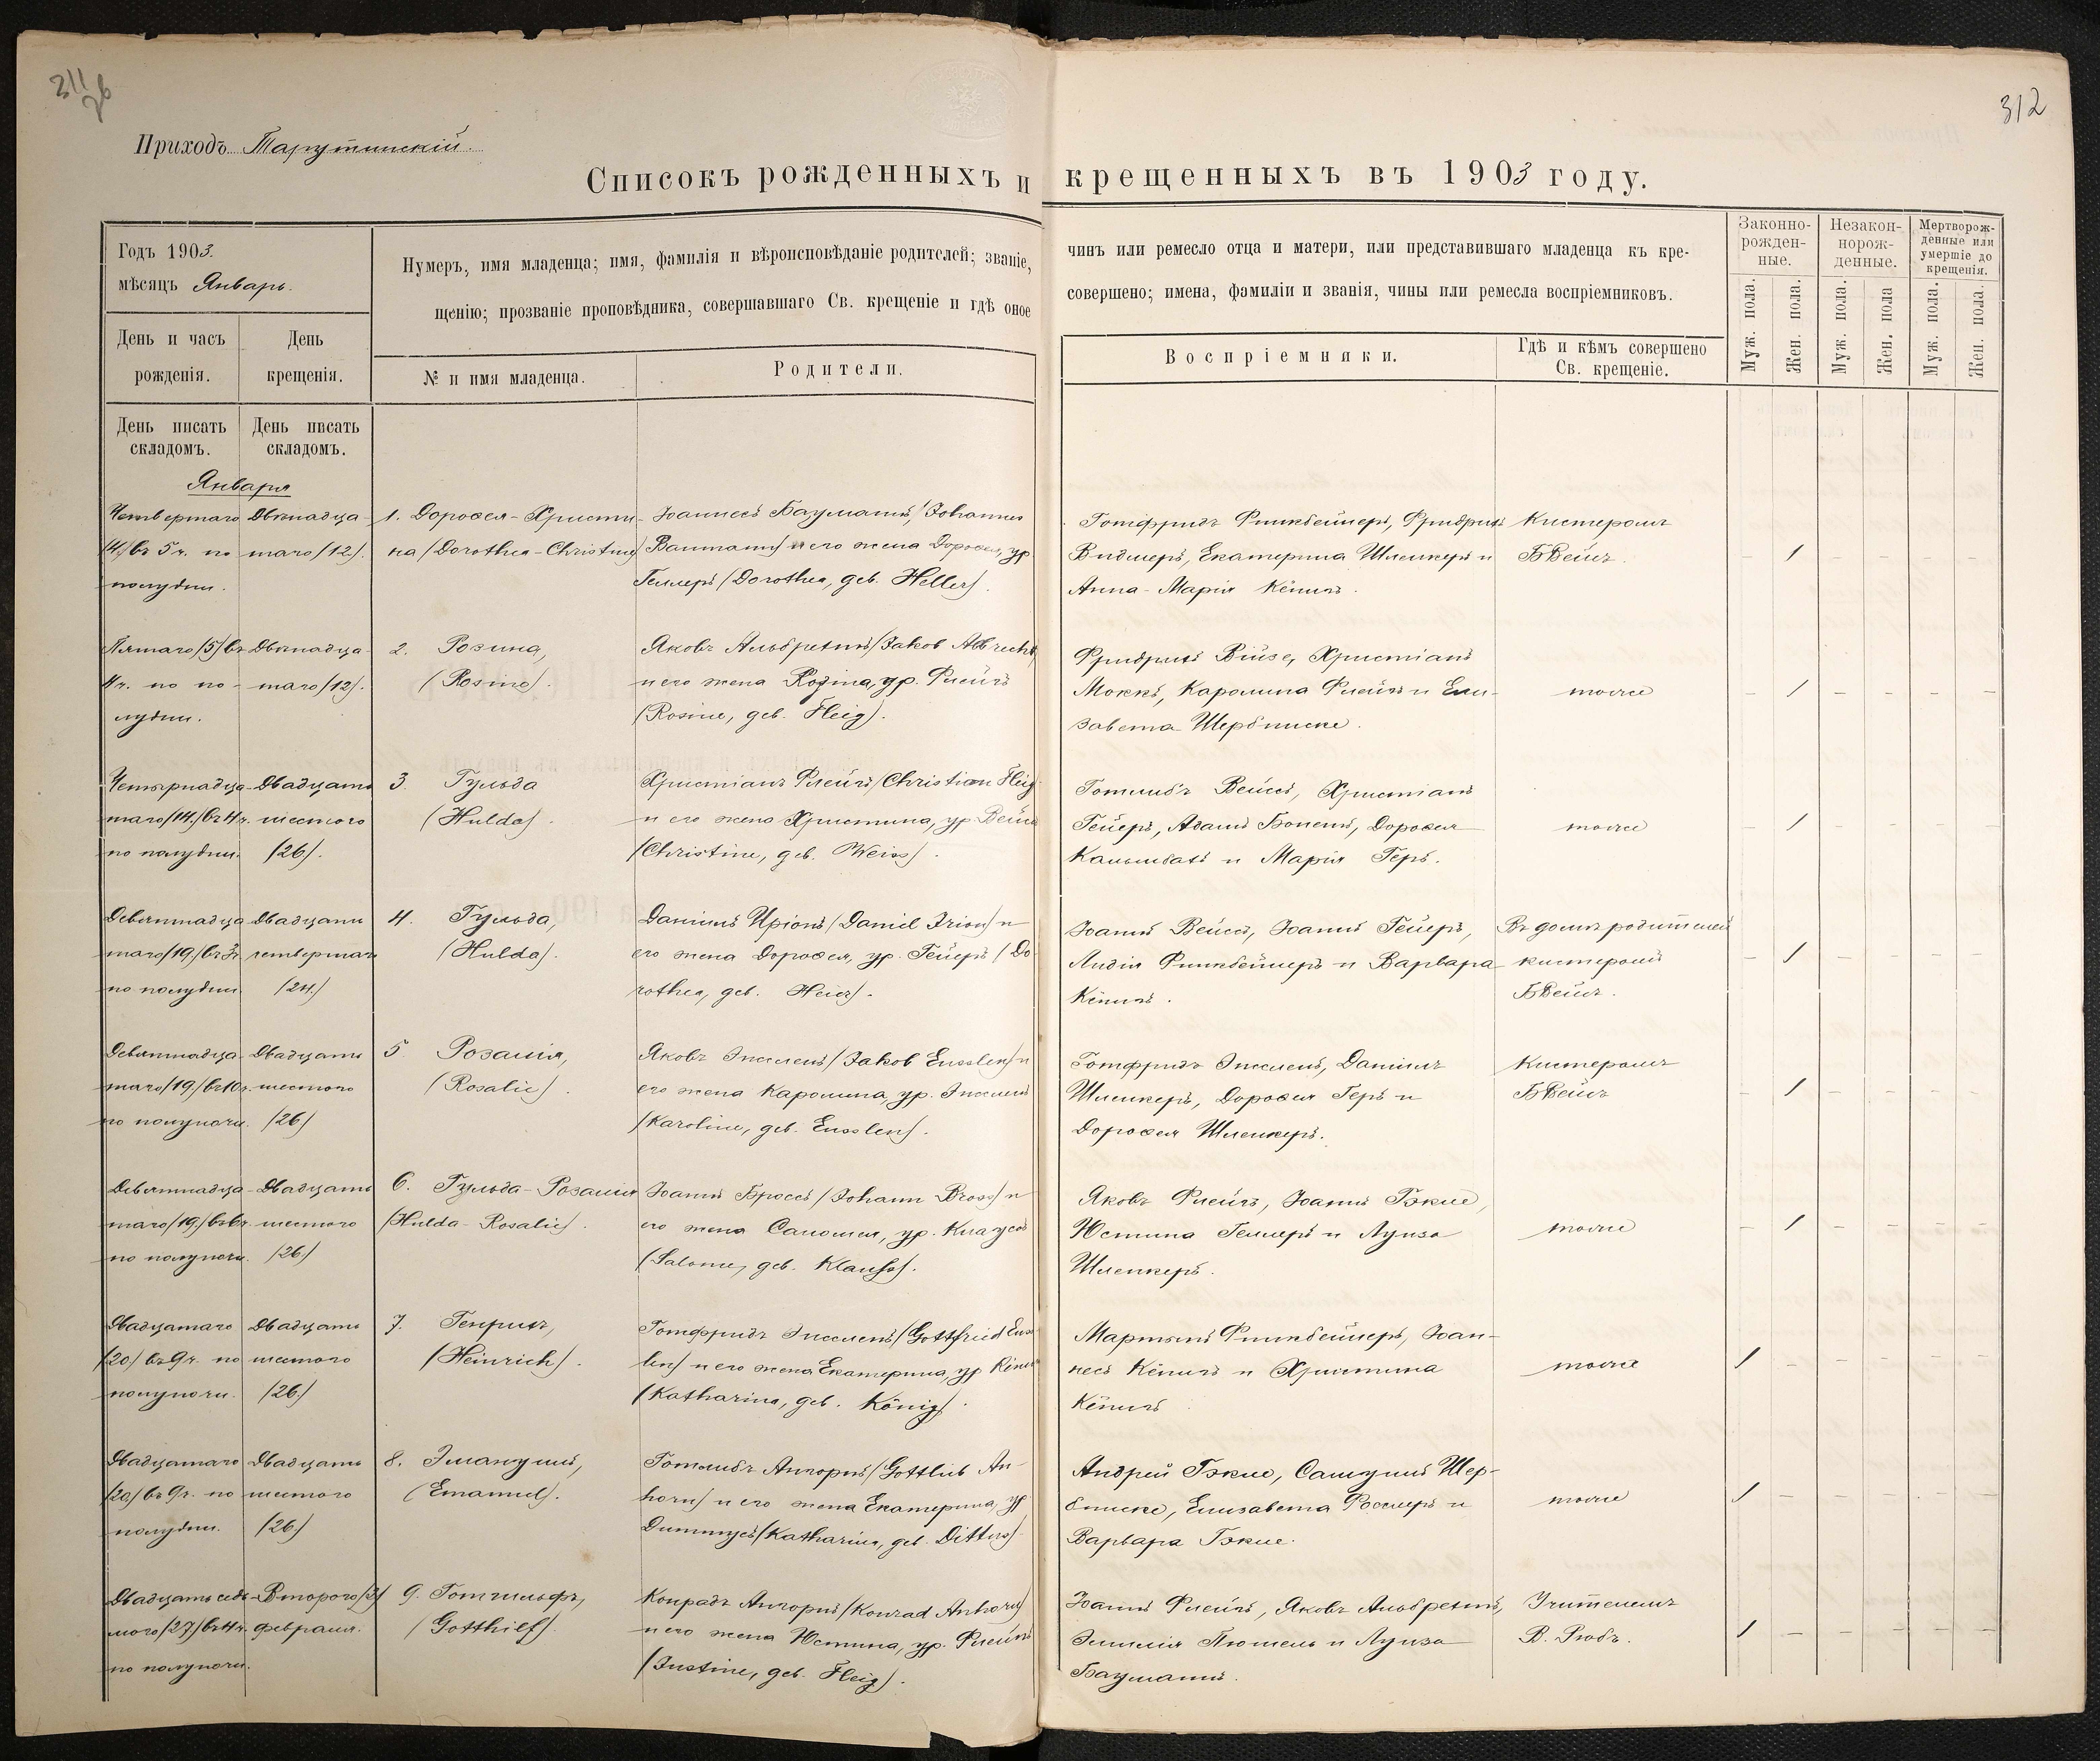 311
об
312
Приходъ Тарутинскій.
Списокъ рожденныхъ и крещенныхъ въ 1903 году.
Годъ 1903.
мѣсяцъ Январь.
Нумеръ, имя младенца; имя, фамилія и вѣроисповѣданіе родителей; званіе, чинъ или ремесло отца и матери, или представившаго младенца къ кре-
щенію; прозваніе проповѣдника, совершавшаго Св. крещеніе и гдѣ оное совершено; имена, фамиліи и званія, чины или ремесла воспріемниковъ.
Законно-
рожден-
ные.
Незакон-
норож-
денные.
Мертворож-
денные или
умершіе до
крещенія.
Муж. пола.
Жен. пола.
Муж. пола.
Жен. пола
Муж. пола.
Жен. пола.
День и часъ
рожденія.
День
крещенія.
№ и имя младенца.
Родители.
Воспріемники.
Гдѣ и кѣмъ совершено
Св. крещеніе.
День писать
складомъ.
День писать
складомъ.
Января
Четвертаго
/4/ въ 5 ч. по
полудни.
Двѣнадца-
таго /12/.
1. Доровея-Кристи-
на /Dorothea-Christine/
Іоаннесъ Бауманнъ, /Johannes
Baumann/ и его жена Доровея, ур
Геллеръ /Dorothea, geb. Heller/.
Готфридъ Финкбейнеръ, Фридрихъ
Видмеръ, Екатерина Шленкеръ и
Анна-Марія Кёнигъ.
Кистеромъ
Б Вейгъ.
– 1 – – – –
Пятаго /5/ въ
4 ч. по по-
лудни.
Двѣнадца-
таго /12/.
2. Розина,
(Rosine).
Яковъ Альбрехтъ /Jakob Albrecht,
и его жена Розина, ур. Флейгъ
(Rosine, geb. Fleig).
Фридрихъ Вiизе, Христіанъ
Моккъ, Каролина Флейгъ и Ели-
завета Щербинске.
тоже
– 1 – – – –
Четырнадца-
таго /14./ въ 4 ч.
по полудни.
Двадцать
шестого
/26/.
3. Гульда
(Hulda).
Христіанъ Флейгъ /Christian Fleig
и его жена Христина, ур Вейсъ
/Christine, geb. Weiss/.
Готлибъ Вейсъ, Христіанъ
Гейеръ, Адамъ Бонетъ, Доровея
Кальмбахъ и Марія Геръ.
тоже
– 1 – – – –
Девятнадца-
таго /19./ въ 3 ч.
по полудни
Двадцать
четвертаго
/24./
4. Гульда,
(Hulda).
Даніилъ Иріонъ /Daniel Irion/ и
его жена Доровея, ур. Гейеръ /Do-
rothea, geb. Heier/.
Іоаннъ Вейсъ, Іоаннъ Гейеръ,
Лидія Финкбейнеръ и Варвара
Кёнигъ.
Въ домѣ родителей
кистеромъ
Б Вейгъ.
– 1 – – – –
Девятнадца-
таго /19./ въ 10 ч.
по полуночи.
Двадцать
шестого
/26/
5. Розалія,
(Rosalie).
Яковъ Энсленъ /Jakob Ensslen/ и
его жена Каролина, ур. Энсленъ
/Karoline, geb. Ensslen/.
Готфридъ Энсленъ, Даніилъ
Шленкеръ, Доровея Геръ и
Доровея Шленкеръ.
Кистеромъ
Б Вейгъ
– 1 – – – –
Девятнадца-
таго /19./ въ 6 ч.
по полуночи.
Двадцать
шестого
/26./
6. Гульда-Розалія
/Hulda-Rosalie/.
Іоаннъ Броссъ /Johann Bross/ и
его жена Саломея, ур. Клаусъ
(Salome, geb. Klauss).
Яковъ Флейгъ, Іоаннъ Гэкле,
Юстина Геллеръ и Луиза
Шленкеръ.
тоже
– 1 – – – –
Двадцатаго
/20/ въ 9 ч. по
полуночи.
Двадцать
шестого
/26./
7. Генрихъ,
(Heinrich).
Готфридъ Энсленъ /Gottfried Enss-
len/ и его жена Екатерина, ур Кёнигъ
/Katharina, geb. König/.
Мартынъ Финкбейнеръ, Іоан-
несъ Кёнигъ и Христина
Кёнигъ
тоже
1 – – – – –
Двадцатаго
/20/ въ 9 ч. по
полудни.
Двадцать
шестого
/26./
8. Эмануилъ,
(Emanuel).
Готлибъ Ангорнъ /Gottlieb An-
horn/ и его жена Екатерина, ур
Диттусъ /Katharina, geb. Dittus/
Андрей Гэкле, Самуилъ Щер-
бинске, Елизавета Росслеръ и
Варвара Гэкле.
тоже
1 – – – – –
Двадцать седь-
мого /27/ въ 4 ч.
по полуночи.
Второго /2/
февраля.
9. Готгильфъ,
(Gotthilf).
Конрадъ Ангорнъ /Konrad Anhorn/
и его жена Юстина, ур. Флейгъ
(Justine, geb. Fleig).
Іоаннъ Флейгъ, Яковъ Альбрехтъ,
Эмилія Пюшель и Луиза
Бауманнъ.
Учителемъ
В. Рюбъ.
1 – – – – –